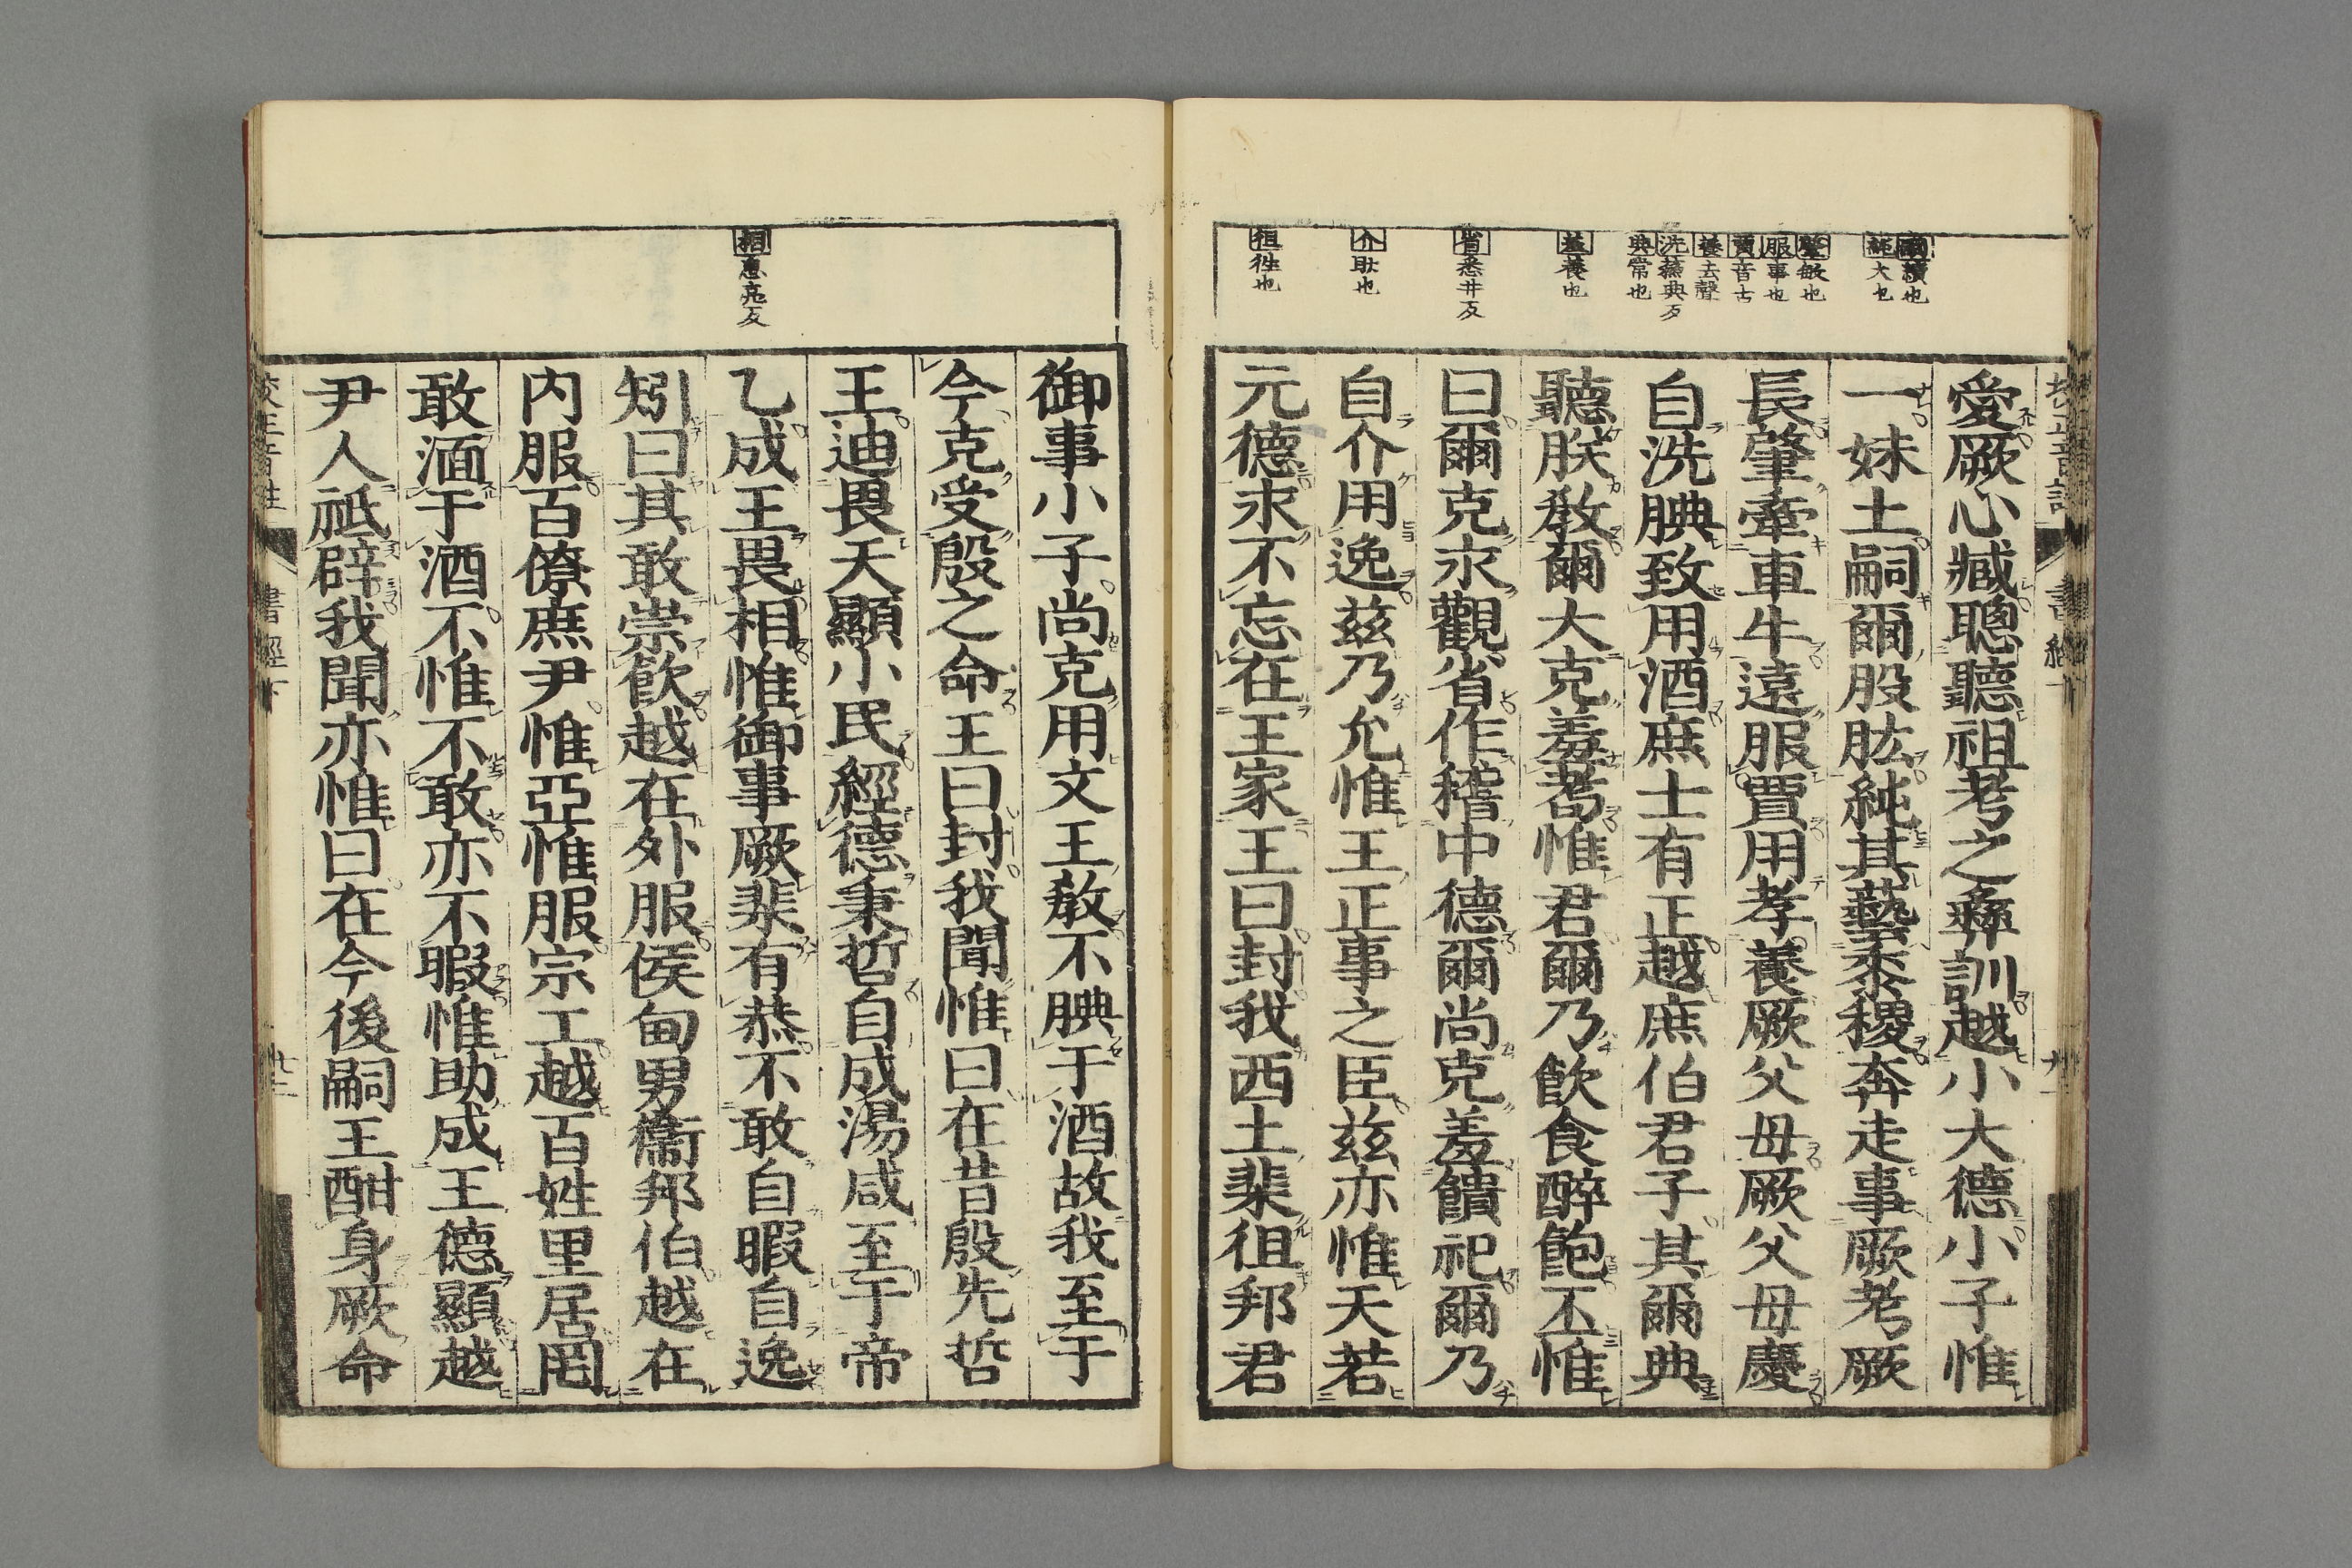 嗣續也
純大也
肇敏也
服事也
賈音古
養去聲
洗蘇典反
典常也
羞養也
省悉井反
介助也
徂往也
愛厥心臧聰聽祖考之彝訓越小大德小子惟
一妹土嗣爾股肱純其藝黍稷奔走事厥考厥
長肇牽車牛遠服賈用孝養厥父母厥父母慶
自洗腆致用酒庶士有正越庶伯君子其爾典
聽朕敎爾大克羞耇惟君爾乃飲食醉飽丕惟
曰爾克永觀省作稽中德爾尚克羞饋祀爾乃
自介用逸茲乃允惟王正事之臣茲亦惟天若
元德永不忘在王家王曰封我西土棐徂邦君
相息亮反
御事小子尚克用文王敎不腆于酒故我至于
今克受殷之命王曰封我聞惟曰在昔殷先哲
王迪畏天顯小民經德秉哲自成湯咸至于帝
乙成王畏相惟御事厥棐有恭不敢自暇自逸
矧曰其敢崇飲越在外服侯甸男衞邦伯越在
内服百僚庶尹惟亞惟服宗工越百姓里居罔
敢湎于酒不惟不敢亦不暇惟助成王德顯越
尹人祗辟我聞亦惟曰在今後嗣王酣身厥命
書經下